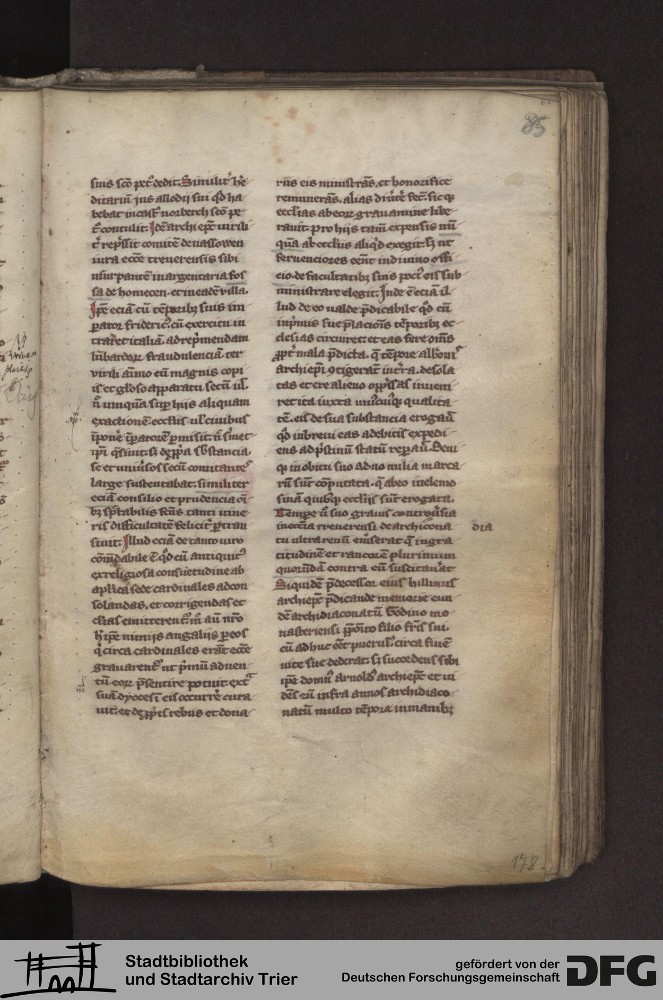 85
suis sc̄o pet̄ dedit. Similit̄ h̄e
ditariū jus allodii sui qd̄ ha
bebat in cast̄ norberch sc̄o pe
t̄ contulit. Id̄e archiep̄c
rep̄ssit comitē de nassowen
iura ecc̄e treuerensis sibi
usurpantē in argentaria fos
sa de homecen. et in eadē villa.
Ip̄e eciā cū tēporib; suis im
perator frideric; cū exercitu in
trar̄et italiā. ad rep̄mendam
lūbardor̄ fraudulenciā. ter
virili aīmo cū magnis copi
is et gl̄oso apparatu secū
n̄ umquā sup̄ hiis aliquam
exactionē eccl̄iis ul̄ ciuibus
se et uniu̇sos secū comitantes
large sustentabat. similiter
eciā consilio et prudencia
ris difficultatē felicit̄ p̄tran
siuit. Illud eciā de tanto uiro
cōm̄dabile ē. qd̄ cū antiquit̄
ex religiosa consuetudine ab
ap̄lica sede cardinales ad con
solandas. et corrigendas ec
cl̄ias emitterent̄. aū nr̄o
tp̄e nimiis angariis p̄ eos
q̄ circa cardinales erāt ecc̄e
grauarent̄. ut p̄mū aduen
tū eor̄ p̄sentire potuit. ext̄
suā dyoces̄ī eis occurr̄e cura
uit. et de p̄p̄is rebus et dona
riis eis ministrās. et honorifice
remunerās. alias diu̇t̄e fec̄. sic q;
eccl̄ias ab eor̄ grauamine libe
rauit. pro hiis tam̄ expensis nū
quā ab eccl̄iis aliqd̄ exegit. s; ut
feruenciores eēnt in diuino offi
cio. de facultatib; suis poci; eis sub
ministrare elegit. Inde ē eciā il
lud de eo ualde p̄dicabile qd̄ cū
in p̄mis sue p̄lacionis tēporib; ec
clesias circuiret. et eas fere om̄s
ꝓpt̄ mala p̄dicta. q̄ tēpore alb̄onis
archiep̄i ꝯtigerāt in t̄ra. desola
tas et ere alieno opp̄ssas inueni
ret. ita iuxta uniu̇cuiq; qualita
tē. eis de sua substancia erogau̇
qd̄ in breui eas a debitis expedi
ens ad p̄stinū statū repauı̇t. Deni
q; in obitu suo ad no milia marca
rū sūt cōputata. q̄ ab eo in elemo
sinā quibusq; eccl̄iis sūt erogata.
Tempe n̄ suo grauis controu̇sia
in ecc̄ia treuerensi de archicona
dia
tu ultra renū emerserat. q̄ ingra
titudinē et rancorē plurimum
quorūdā contra eū suscitau̇at
Siquidē p̄decessor eius hillinus
archiep̄c p̄dicande memorie eun
dē archidiaconatū Godino mo
nasteriensi p̄p̄ōito filio fr̄is sui.
cū adhuc eēt puerul; circa finē
uite sue dederat. s; succedens sibi
ip̄e domn; arnold; archiep̄c et ui
dēs eū infra annos archidiaco
natū multo tēpore in manib;
178
Stadtbibliothek
und Stadtarchiv Trier
gefördert von der
Deutschen Forschungsgemeinschaft
DFG